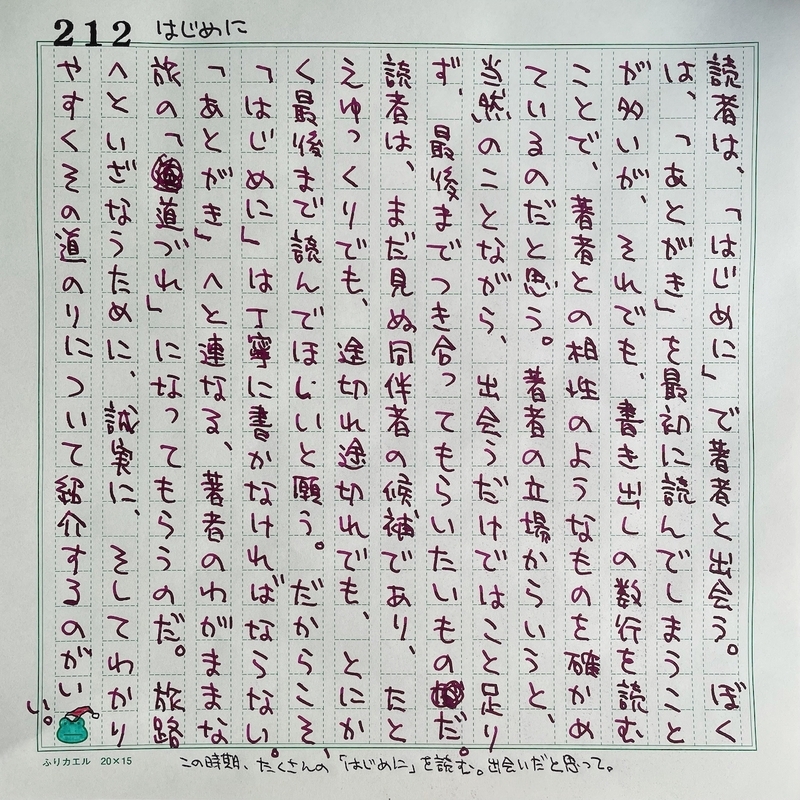 212 はじめに
読者は、「はじめに」で著者と出会う。ぼく
は、「あとがき」を最初に読んでしまうこと
が多いが、それでも、書き出しの数行を読む
ことで、著者との相性のようなものを確かめ
ているのだと思う。著者の立場からいうと、
当然のことながら、出会うだけではこと足り
ず、最後までつき合ってもらいたいものだ。
読者は、まだ見ぬ同伴者の候補であり、たと
えゆっくりでも、途切れ途切れでも、とにか
く最後まで読んでほしいと願う。だからこそ、
「はじめに」は丁寧に書かなければならない。
「あとがき」へと連なる、著者のわがままな
旅の「道づれ」になってもらうのだ。旅路
へといざなうために、誠実に、そしてわかり
やすくその道のりについて紹介するのがい
い。
ふりカエル 20×15
この時期、たくさんの「はじめに」を読む。出会いだと思って。